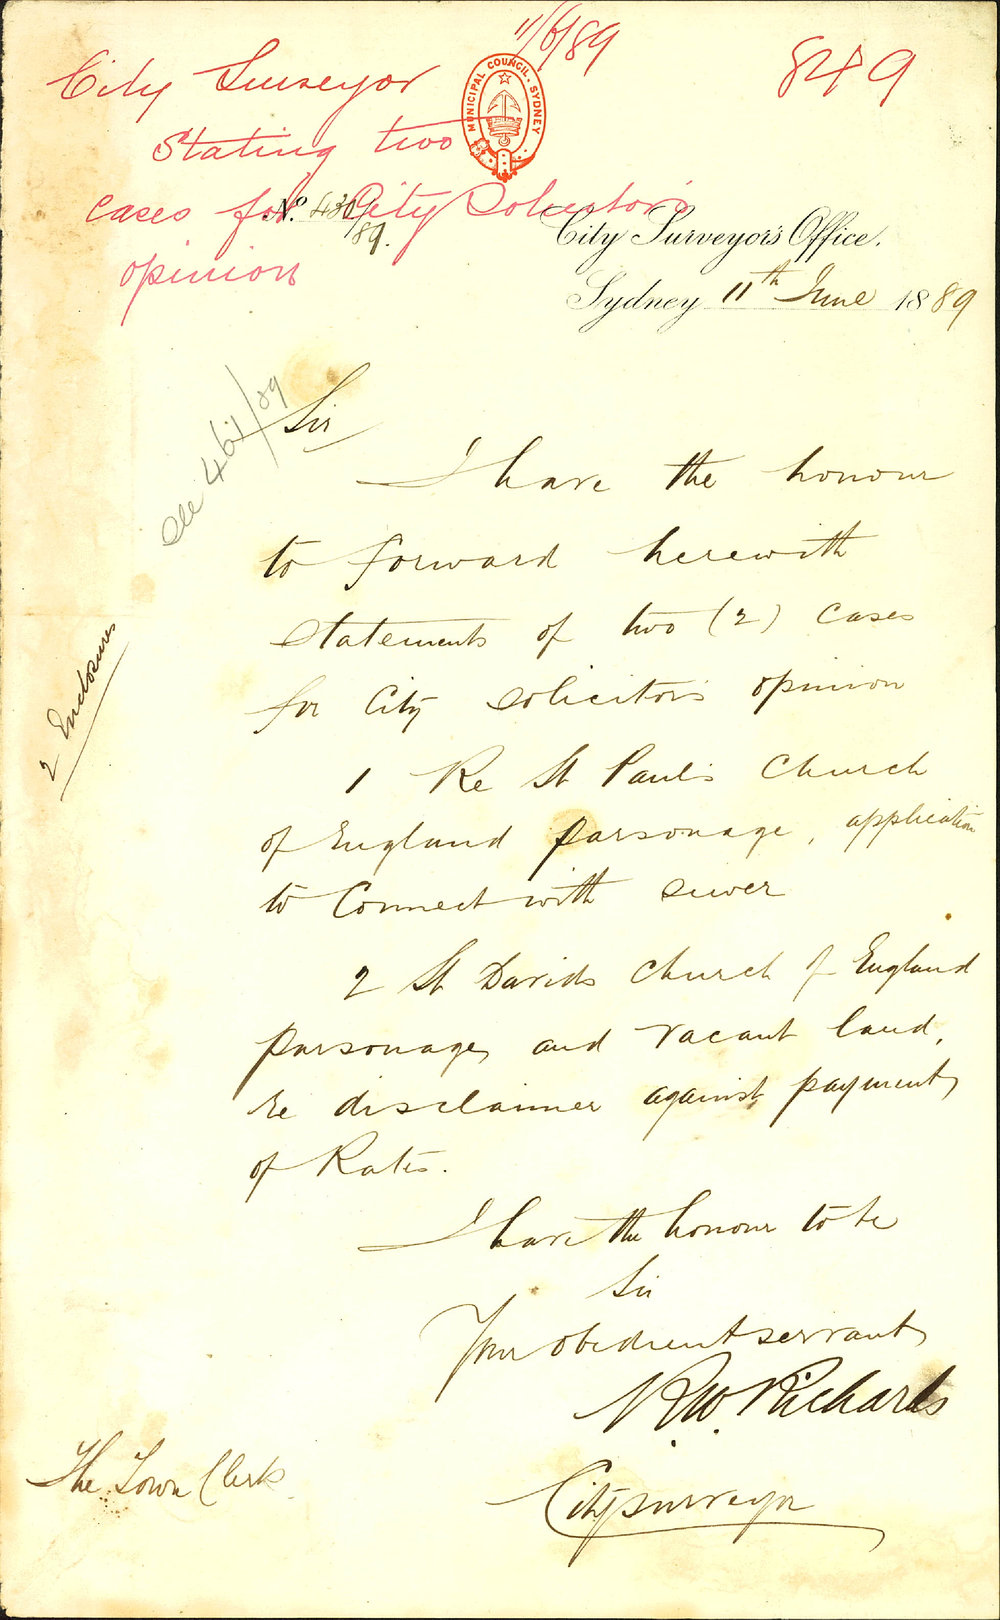 11/6/89
849
City Surveyor
Stating two
cases for City Solicitor's
opinion
MUNICIPAL COUNCIL. SYDNEY
No. 430/89.
City Surveyor's Office.
Sydney 11th June 1889
see 461/89
Sir
I have the honour
to forward herewith
statements of two (2) cases
for City Solicitor's opinion
1 Re St Paul's Church
of England parsonage, application
to Connect with sewer
2 St Davids Church of England
parsonage, and vacant land,
re disclaimer against payment
of Rates.
2 Enclosures
I have the honour to be
Sir
Your obedient servant
R W. Richards
City surveyor
The Town Clerk